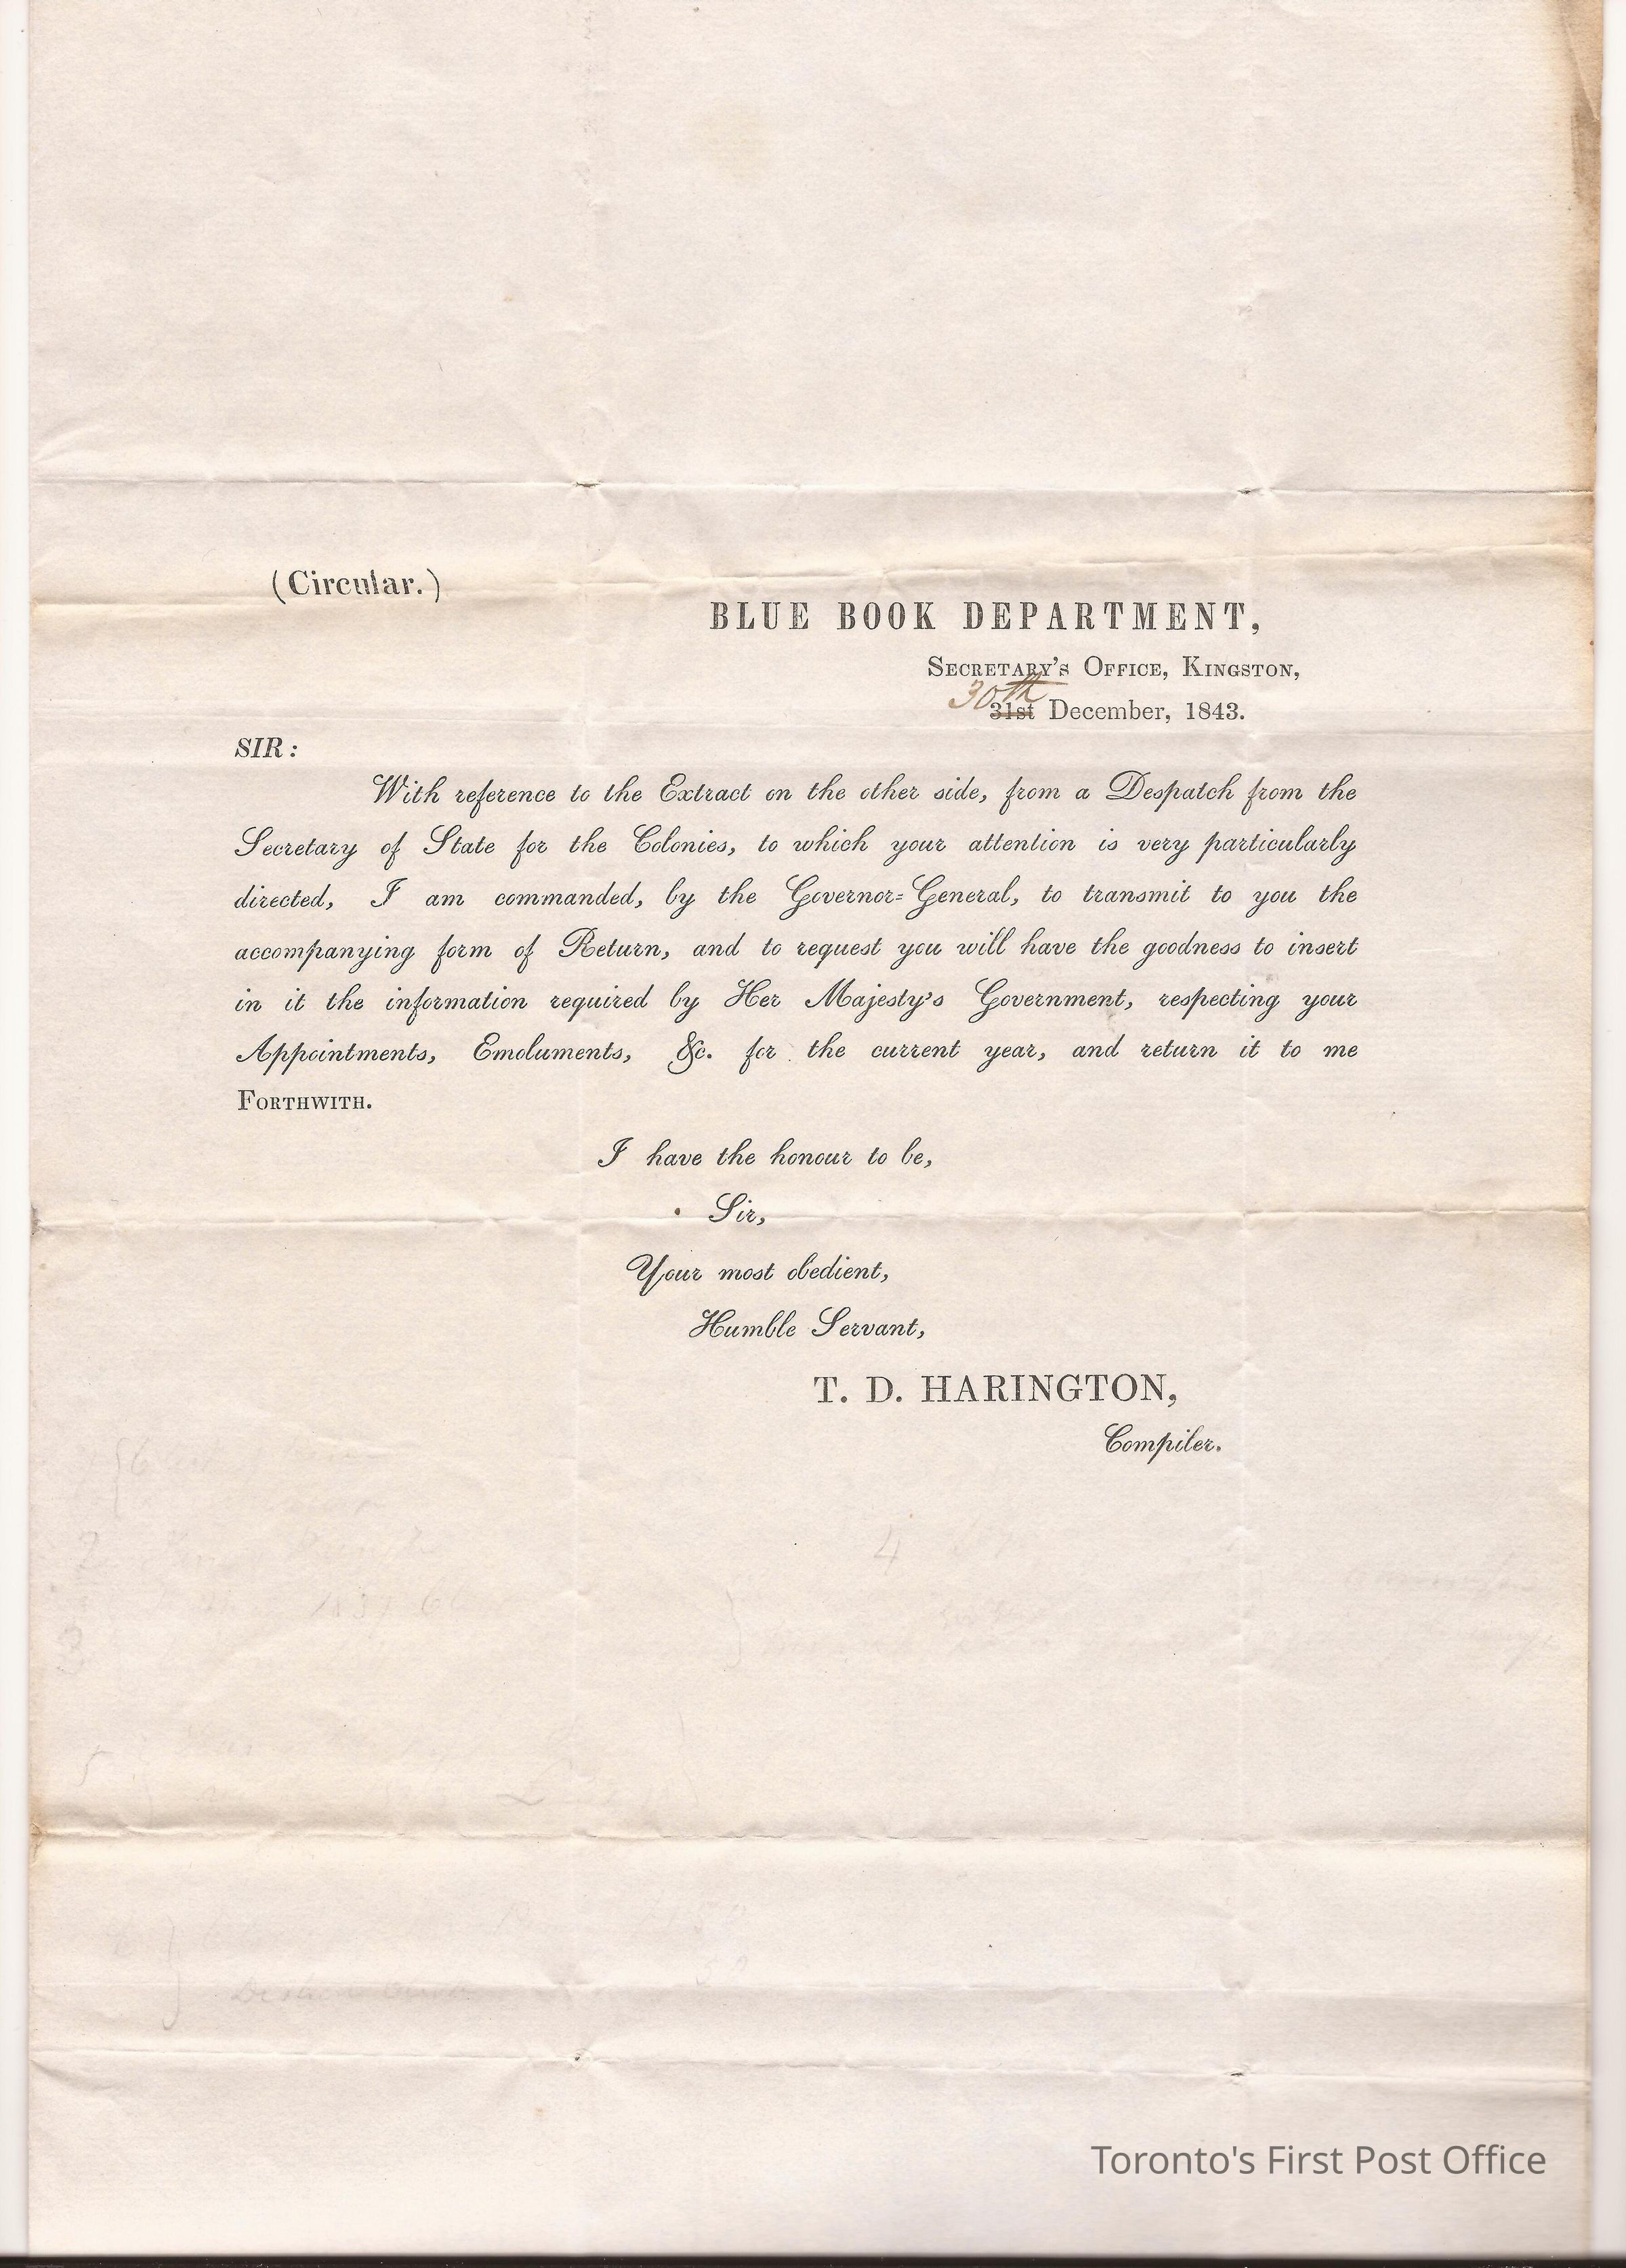 (Circular.)
BLUE BOOK DEPARTMENT,
SECRETARY'S OFFICE, KINGSTON,
30th
31st December, 1843.
SIR:
With reference to the Extract on the other side, from a Despatch from the
Secretary of State for the Colonies, to which your attention is very particularly
directed, I am commanded, by the Governor-General, to transmit to you the
accompanying form of Return, and to request you will have the goodness to insert
in it the information required by Her Majesty's Government, respecting your
Appointments, Emoluments, &c. for the current year, and return it to me
FORTHWITH.
I have the honour to be,
Sir,
Your most obedient,
Humble Servant,
T. D. HARINGTON,
Compiler.
2
4
3
5
Toronto's First Post Office